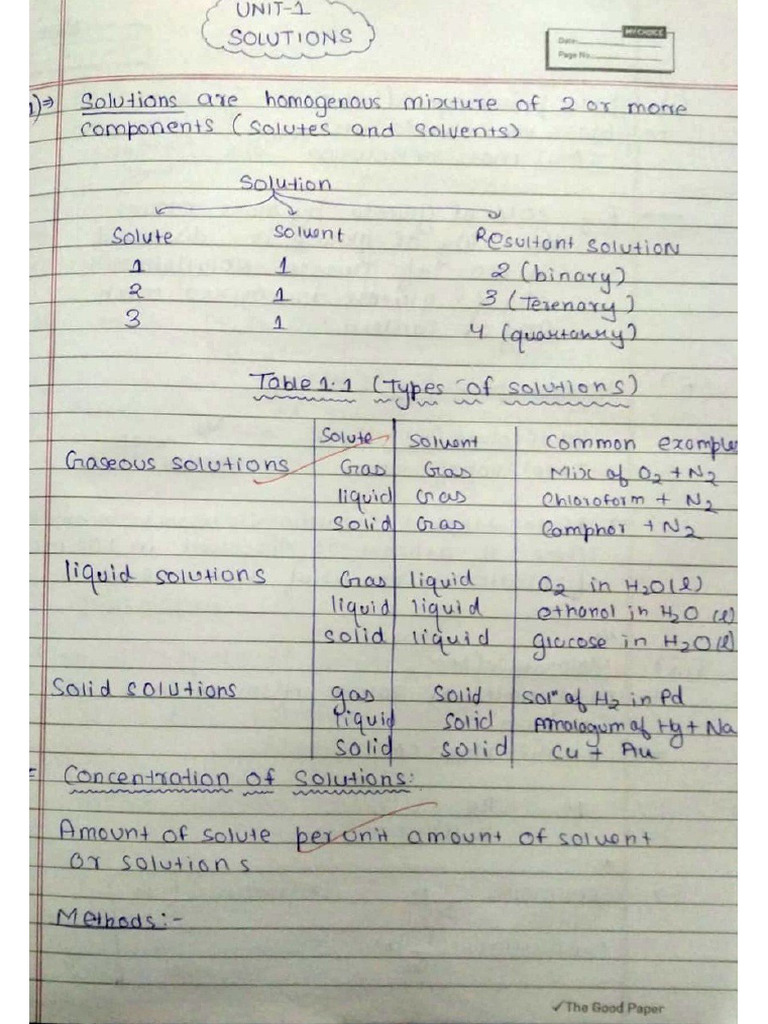 UNIT-1
SOLUTIONS
MY CHOICE
Date:
Page No.
1)⇒ Solutions are homogenous mixture of 2 or more
components (solutes and solvents)
Solution
Solute Solvent Resultant solution
1 1 2 (binary)
2 1 3 (Terenary)
3 1 4 (quartanry)
Table 1.1 (Types of solutions)
Solute Solvent Common example
Gaseous solutions Gas Gas Mix of O2 + N2
liquid Gas Chloroform + N2
Solid Gas Camphor + N2
liquid solutions Gas liquid O2 in H2O(l)
liquid liquid ethanol in H2O (l)
solid liquid glucose in H2O(l)
Solid solutions gas Solid Solⁿ of H2 in Pd
liquid solid Amalagum of Hg + Na
Solid solid Cu + Au
= Concentration of solutions:
Amount of solute per unit amount of solvent
or solutions
Methods:-
✓The Good Paper